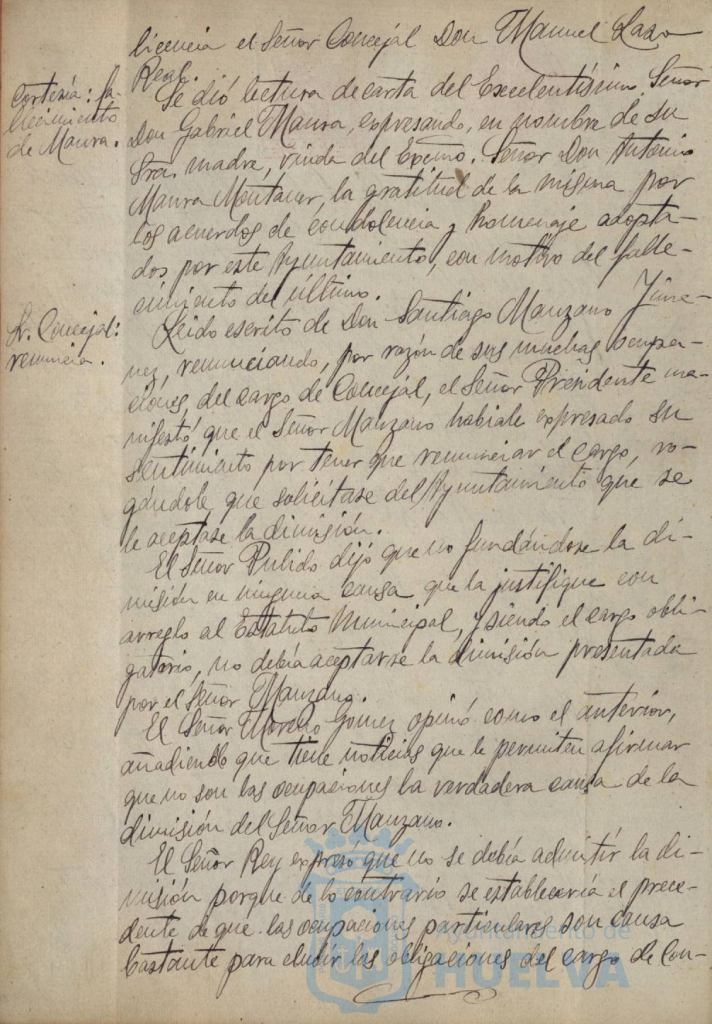 licencia el Señor Concejal Don Manuel Lazo
Real.
Cortesía: fa-
llecimiento
de Maura.
Se dió lectura de carta del Excelentísimo Señor
Don Gabriel Maura, expresando, en nombre de su
Sra. madre, viuda del Excmo. Señor Don Antonio
Maura Montaner, la gratitud de la misma por
los acuerdos de condolencia y homenaje adopta-
dos por este Ayuntamiento, con motivo del falle-
cimiento del último.
Sr. Concejal:
renuncia.
Leido escrito de Don Santiago Manzano Jime-
nez, renunciando, por razón de sus muchas ocupa-
ciones, del cargo de Concejal, el Señor Presidente ma-
nifestó que el Señor Manzano habiale expresado su
sentimiento por tener que renunciar el cargo, ro-
gándole que solicitase del Ayuntamiento que se
le aceptase la dimisión.
El Señor Pulido dijó que no fundándose la di-
misión en ninguna causa que la justifique con
arreglo al Estatuto Municipal, y siendo el cargo obli-
gatorio, no debía aceptarse la dimisión presentada
por el Señor Manzano.
El Señor Moreno Gomez opinó como el anterior,
añadiendo que tiene noticias que le permiten afirmar
que no son las ocupaciones la verdadera causa de la
dimisión del Señor Manzano.
El Señor Rey expresó que no se debía admitir la di-
misión porque de lo contrario se establecería el prece-
dente de que las ocupaciones particulares son causa
bastante para eludir las obligaciones del cargo de Con-
Ayuntamiento de
HUELVA